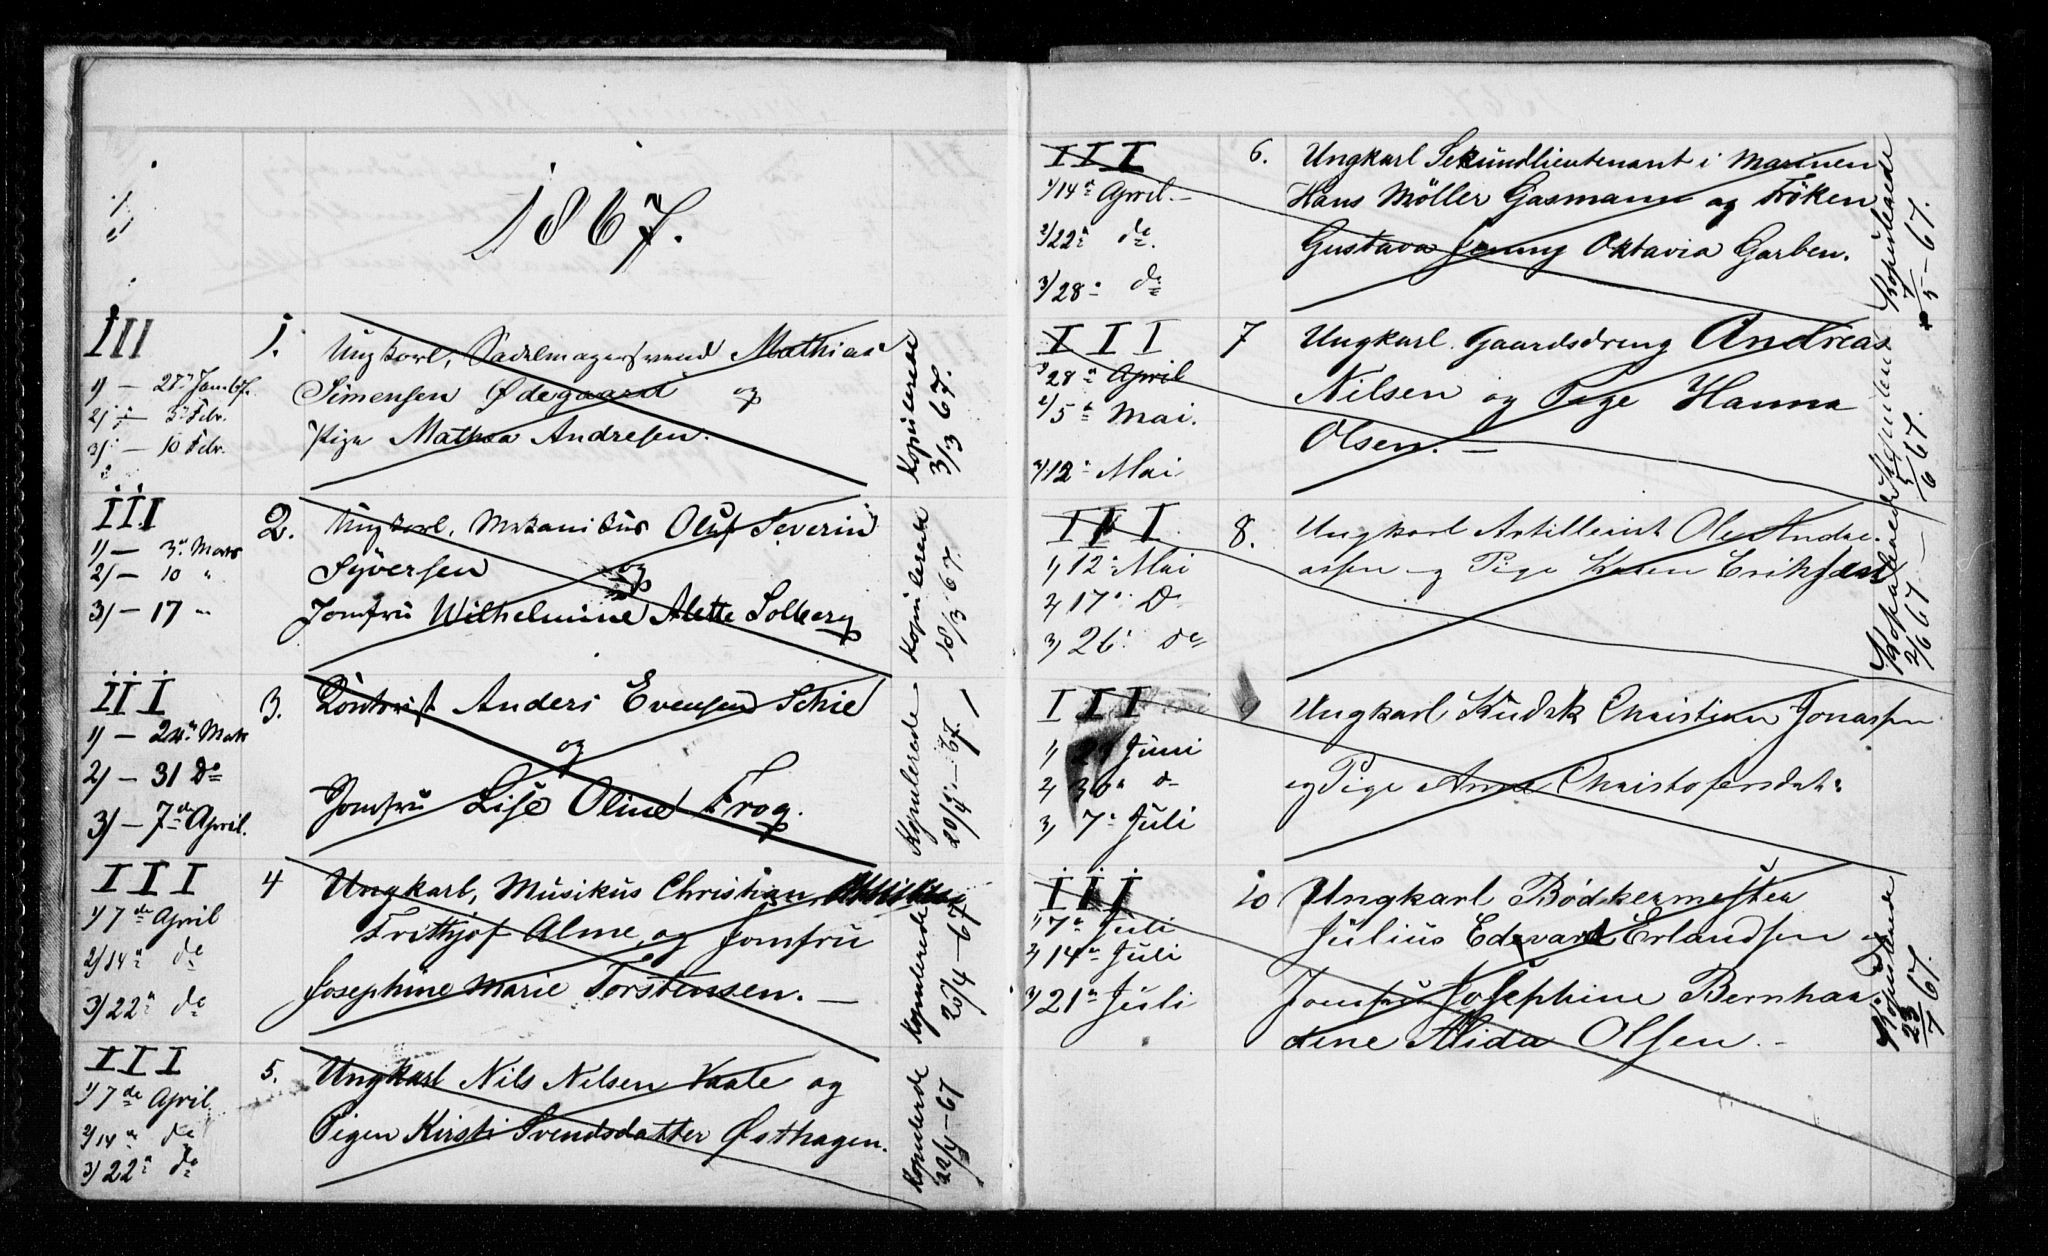 1867.
III
1) — 27de Jan
2) — 3 Febr.
3) — 10 Febr.
1.
Ungkarl, Sadelmagersvend Mathias
Simensen Ødegaard og
Pige Mathea Andresen.
Kopulerede
3/3 67.
III
1) — 3die Mars
2) — 10 "
3) — 17 "
2.
Ungkarl, Mekanikus Oluf Severin
Syversen og
Jomfru Wilhelmine Alette Solberg
Kopulerede
18/3 67.
III
1) — 24de Mars
2) — 31 Do
3) — 7de April.
3.
Anders Evensen Schie
og
Jomfru Lise Oline Frog.
Kopulerede
20/4 — 67.
III
1) 7de April
2) 14de do
3) 22de do
4
Ungkarl, Musikus Christian
Frithjof Alme og Jomfru
Josephine Marie Torstensen. —
Kopulerede
20/4 — 67
III
1) 7de April
2) 14de do
3) 22de do
5.
Ungkarl Nils Nilsen Vaale og
Pigen Kirsti Svendsdatter Østhagen.
Kopulerede
22/4 — 67
III
1) 14de April. —
2) 22de do.
3) 28de do
6.
Ungkarl Sekundlieutenant i Marinen
Hans Möller Gasmann og Frøken
Gustava Jenny Oktavia Garben.
Kopulerede
7/5 — 67.
III
1) 28de April
2) 5te Mai.
3) 12te Mai
7
Ungkarl Gaardsdreng Andreas
Nilsen og Pige Hanna
Olsen. —
Kopulerede
5/6 67.
III
1) 12te Mai
2) 17de Do
3) 26de do
8.
Ungkarl Artillerist Ole Andre-
assen og Pige Karen Eriksdat
Kopulerede
2/6 67 —
III
1) Juni
2) 30te do
3) 7de Juli
Ungkarl Kudsk Christian Jonassen
og Pige Anne Christofersdat:
III
1) 7de Juli
2) 14de Juli
3) 21de Juli
10
Ungkarl Bødkermester
Julius Edevard Erlandsen og
Jomfru Josephine Bernhar
dine Alida Olsen. —
Kopulerede
23/7 67.